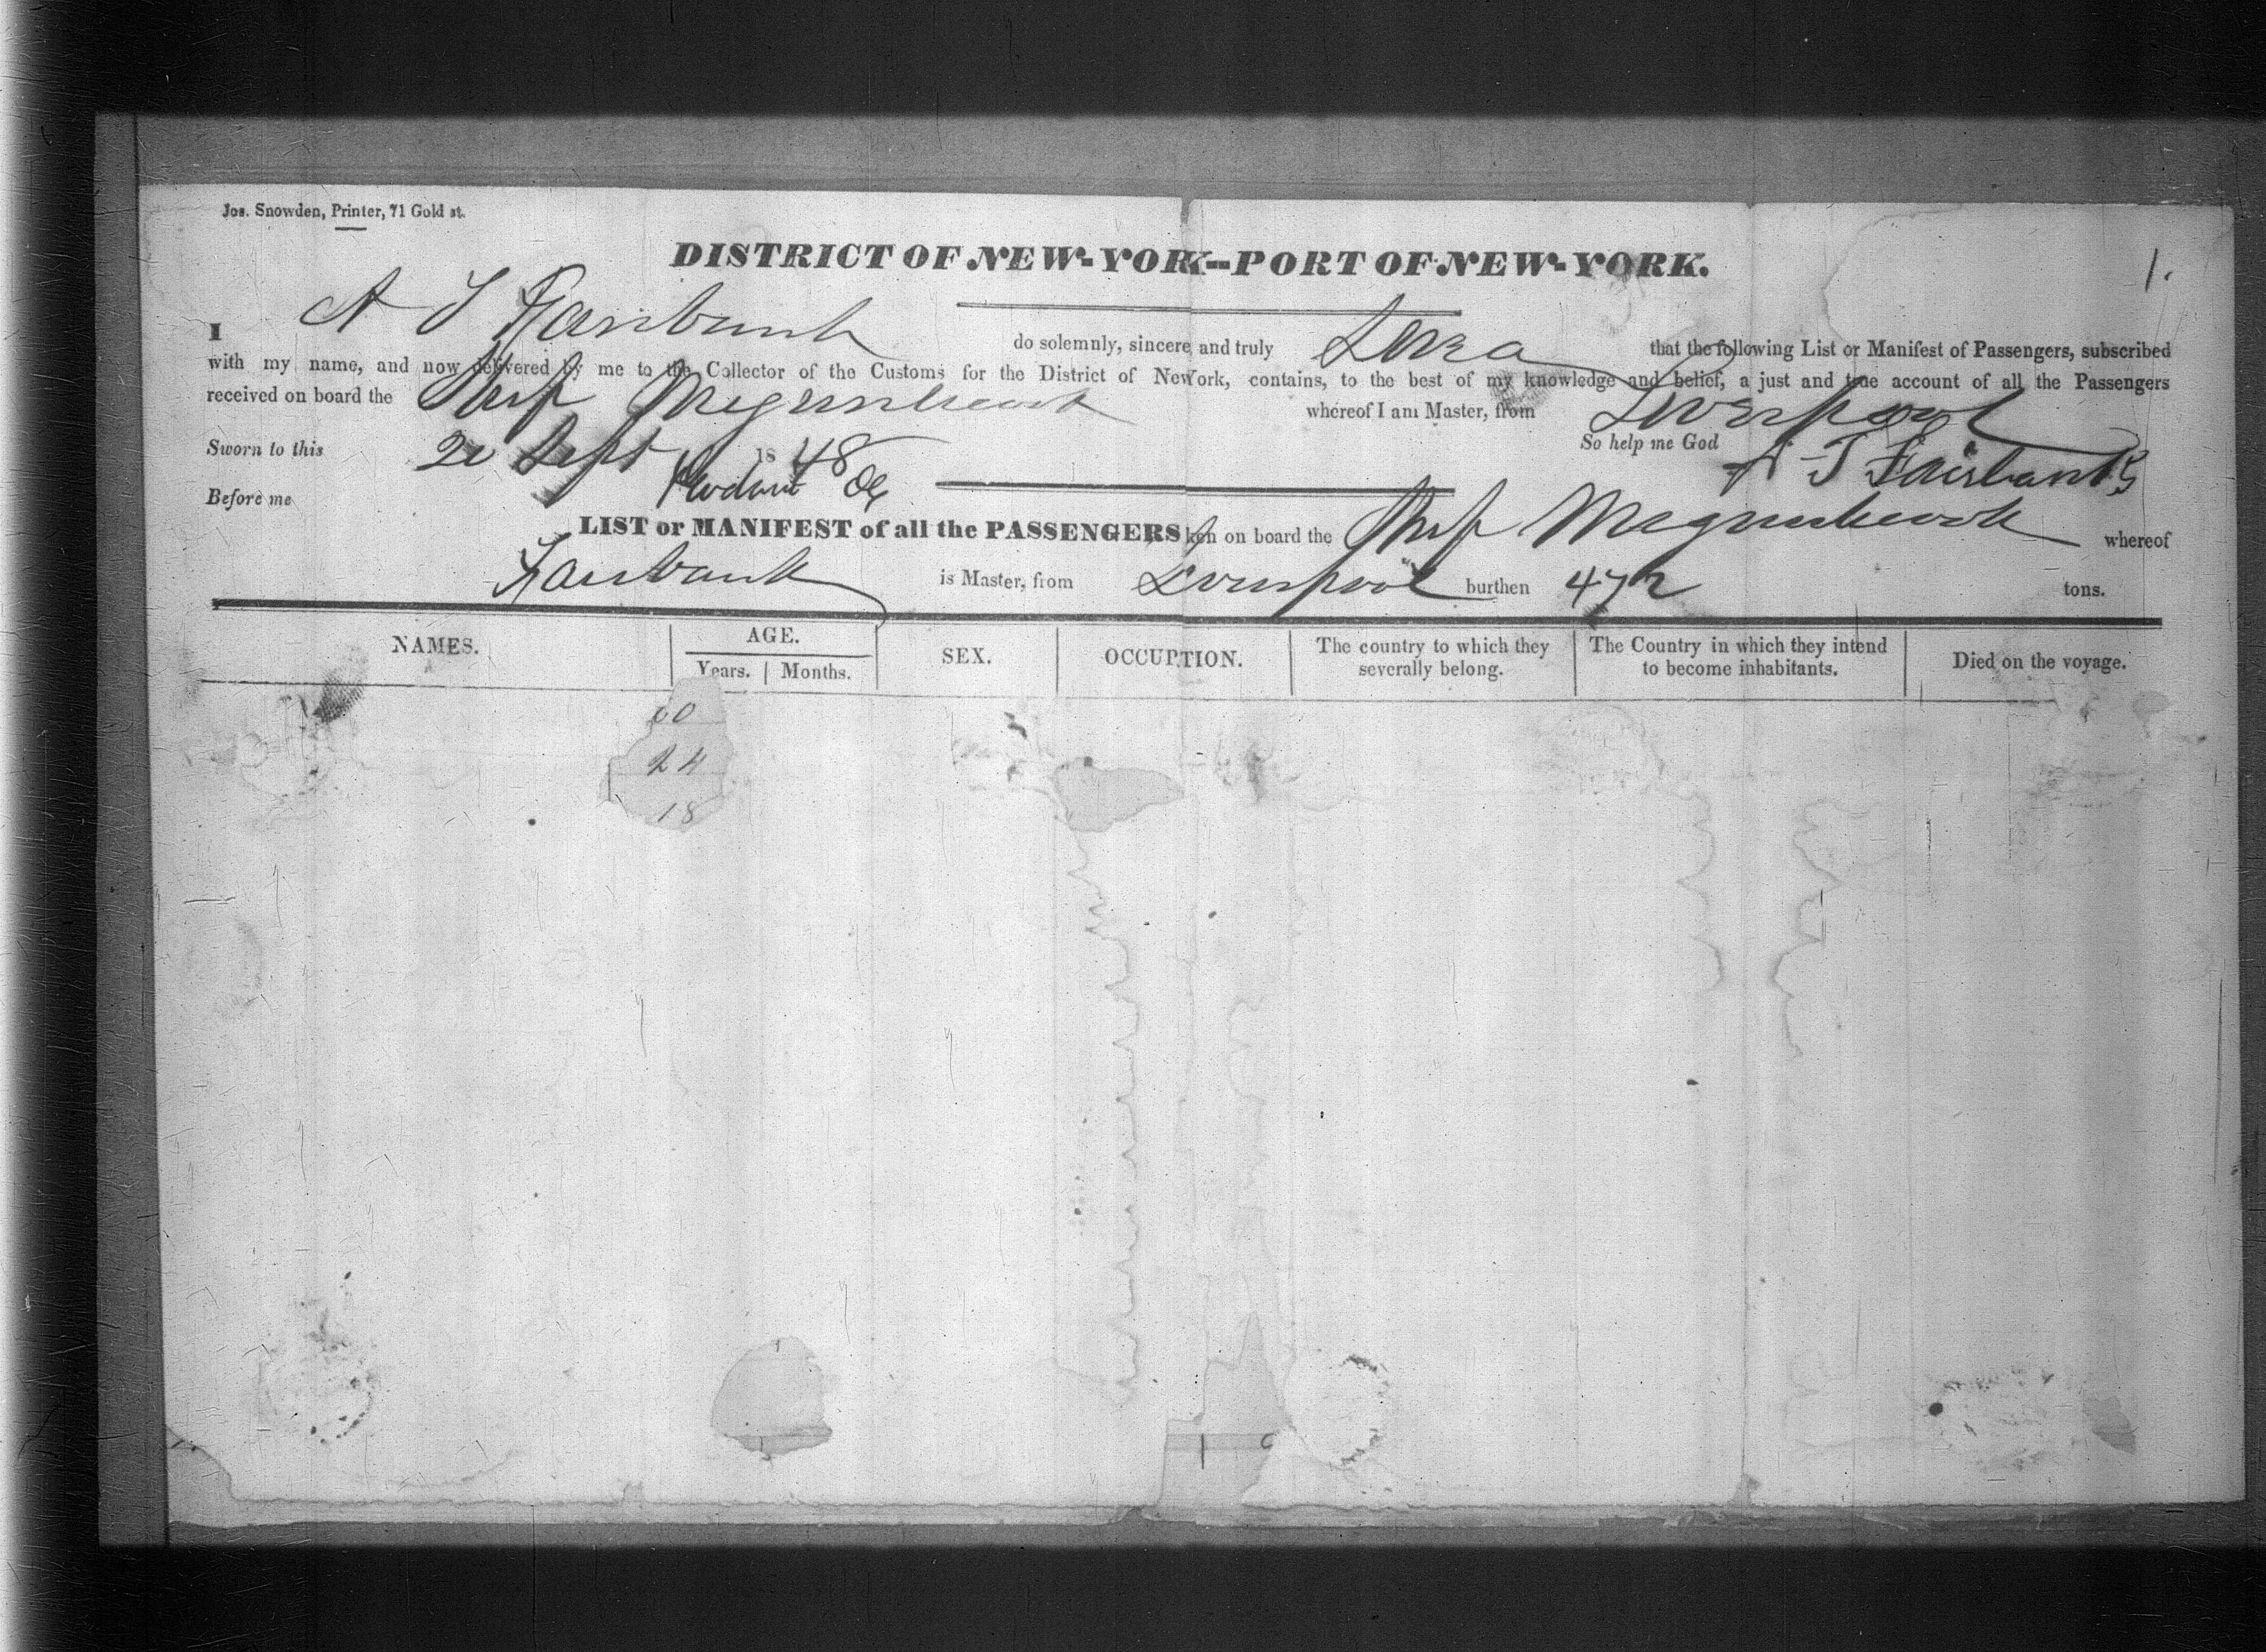 Jos. Snowden, Printer, 71 Gold st.
DISTRICT OF NEW-YORK--PORT OF NEW-YORK.
1.
I A T Fairbank do solemnly, sincere and truly that the following List or Manifest of Passengers, subscribed
with my name, and now delivered by me to the Collector of the Customs for the District of New York, contains, to the best of my knowledge and belief, a just and true account of all the Passengers
received on board the whereof I am Master, from Liverpool
Sworn to this Sept 1848 So help me God A T Fairbanks
Before me
LIST or MANIFEST of all the PASSENGERS ken on board the whereof
Fairbank is Master, from Liverpool burthen 472 tons.
NAMES. AGE. SEX. OCCUPTION. The country to which they severally belong. The Country in which they intend to become inhabitants. Died on the voyage.
Years. Months.
24
18